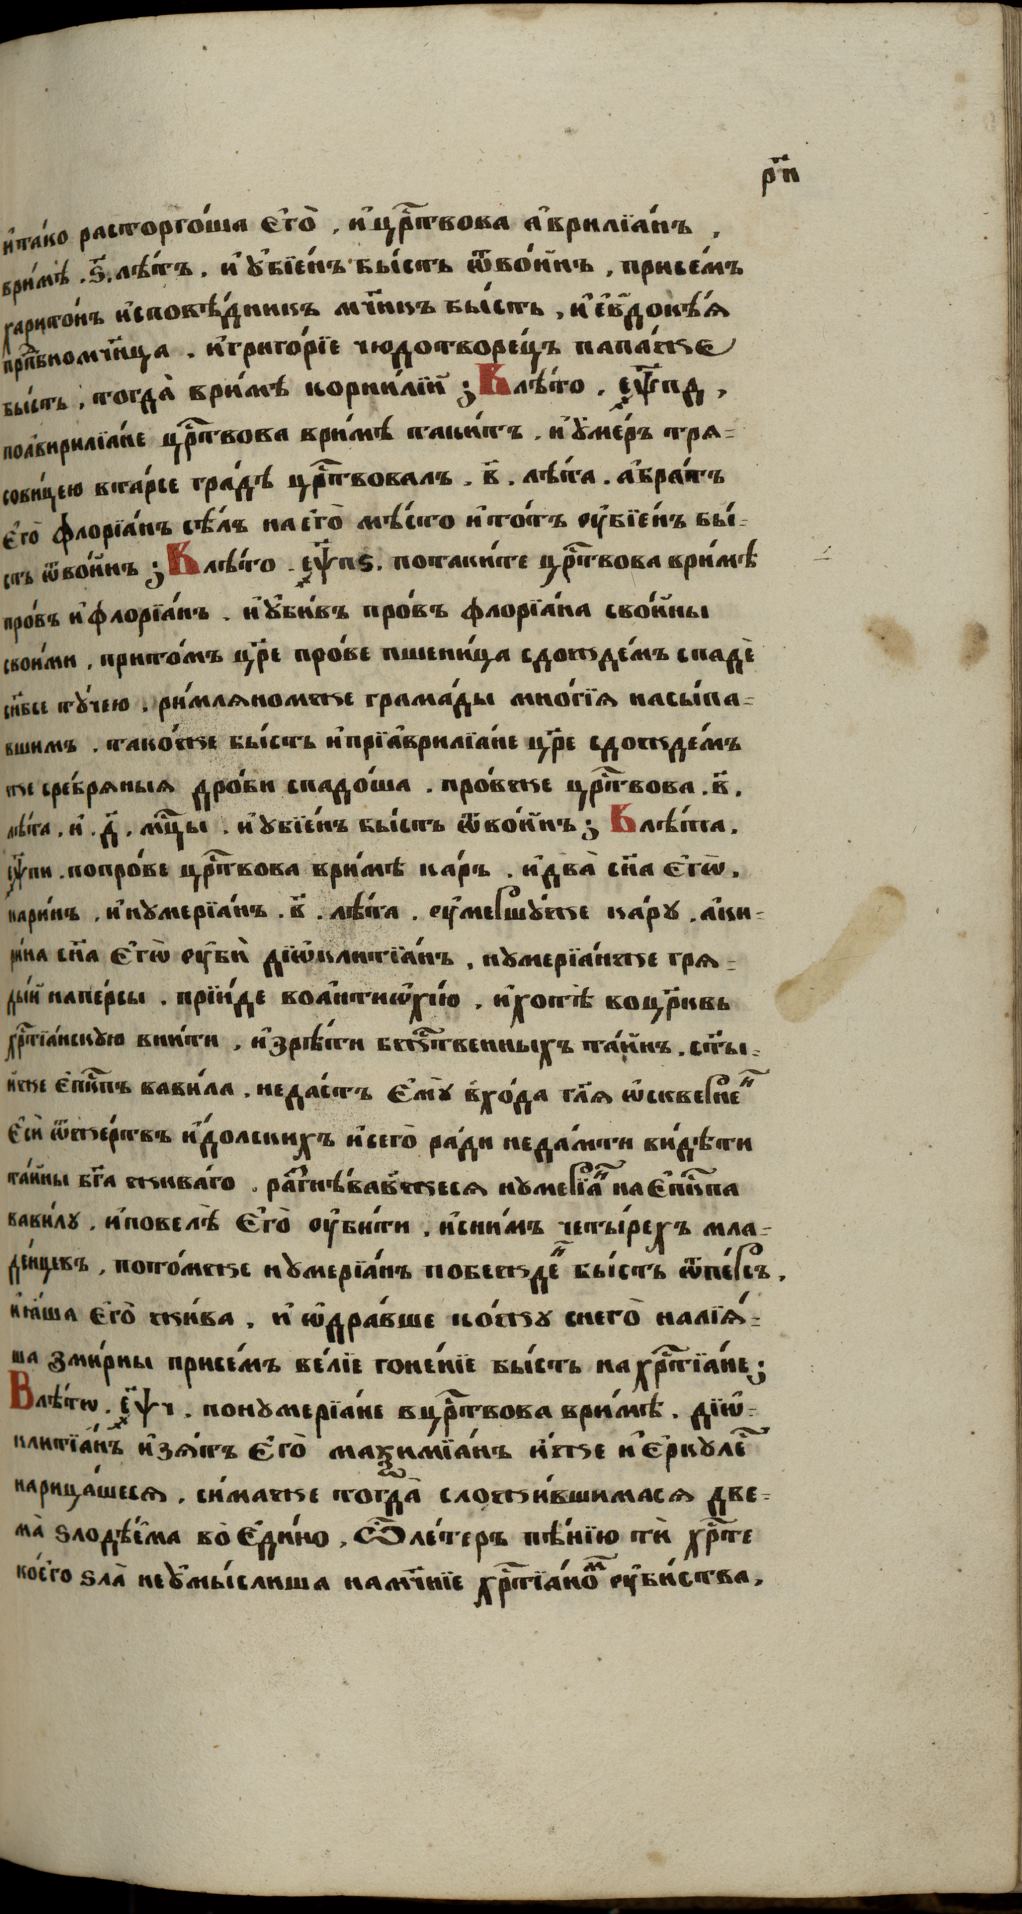 р҃и
и҆та́ко расторго́ша є҆го̀ , и҆ цр҃твова а҆врилїа́нъ ,
ври́мѣ . ѕ҃ . лѣ́тъ . и҆ ꙋ҆бїе́нъ бы́сть ѿво́инъ , присе́мъ
харито́нъ и҆сповѣ́дникъ мч҃нкъ бы́сть , и҆ є҆вдокѣ́ѧ
прпⷣбномч҃нца . и҆григо́рїе чюдотворе́цъ папа́же
бы́сть , тогда̀ ври́мѣ корни́лїи ; Влѣ́то , єѱ҃пд ,
поа҆вирилїа́не цр҃твова ври́мѣ таки́тъ . и҆ ꙋ҆ме́ръ трѧ=
сови́цею вта́рсе гра́дѣ цр҃твовалъ . в҃ . лѣ́та . а҆бра́тъ
є҆го̀ флорїа́нъ сѣ́лъ на є҆го̀ мѣ́сто и҆ то́тъ оу҆бїе́нъ бы́=
сть ѿво́инъ ; Влѣ́то . єѱ҃пѕ . потаки́те цр҃твова ври́мѣ
про́въ и҆ флорїа́нъ . и҆ ꙋ҆би́въ про́въ флорїа́на сво́ины
свои́ми , прито́мъ цр҃е про́ве пшени́ца сдожде́мъ спадѐ
си́бсе тꙋ́чею . ри́млѧномже грама́ды мно́гїѧ насы́па=
вшимъ . тако́же бы́сть и҆ прїа҆врилїа́не цр҃е сдожде́мъ
же сре́брѧныѧ дро́би спадо́ша . про́вже цр҃твова . в҃ .
лѣ́та . и҆ . д҃ . мцⷭ҇ы . и҆ ꙋ҆бїе́нъ бы́сть ѿво́инъ ; Влѣ́та .
єѱ҃пи . попро́ве цр҃твова ври́мѣ ка́ръ . и҆ два̀ сн҃а є҆гѡ̀ .
кари́нъ , и҆ кꙋмерїа́нъ . в҃ . лѣ́та . оу҆ме́ршꙋже ка́рꙋ . а҆ки=
ри́на сн҃а є҆гѡ̀ оу҆бѝ дїѡ҆клитїа́нъ , кꙋмерїа́нже грѧ=
ды́и напе́рсы . прїи́де воа҆нтиѡ҆хі́ю , и҆ хотѣ̀ воцр҃ковь
хрⷭ҇тїа́нскꙋю вни́ти , и҆ зрѣ́ти бжⷭ҇твенныхъ та́инъ . ст҃ы=
и҆же є҆пⷭ҇кпъ вави́ла . неда́стъ є҆мꙋ̀ в҆хо́да гл҃ѧ ѡ҆скверне́нъ
є҆сѝ ѿже́ртвъ и҆́дольскихъ и҆ сего̀ ра́ди неда́мти ви́дѣти
та́ины бг҃а жива́го . разгнѣ́вавжесѧ кꙋмерїа́нъ на є҆пⷭ҇кпа
вави́лꙋ . и҆ повелѣ̀ є҆го̀ оу҆би́ти . и҆ сни́мъ четы́рехъ мла=
де́нцевъ , пото́мже кꙋмерїа́нъ побежде́нъ бы́сть ѿпе́рсъ .
и҆ ꙗ҆́ша є҆го̀ жи́ва , и҆ ѡ҆дра́вше ко́жꙋ снего̀ налїѧ́=
ша зми́рны присе́мъ ве́лїе гоне́нїе бы́сть на хрⷭ҇тїа́не ;
Влѣ́тѡ . єѱ҃ч . покꙋмерїа́не в цр҃твова ври́мѣ . дїѡ҆=
клитїа́нъ и҆ зѧ́тъ є҆го̀ маѯимїа́нъ и҆́же и҆ є҆ркꙋле́съ
нарица́шесѧ , си́маже тогда̀ сложи́вшимасѧ две=
ма̀ ѕлодѣ́има во є҆ди́но , Ѽ ле́теръ пѣ́нїю тѝ хрⷭ҇те
ко́єго ѕла̀ не ꙋ҆мы́слиша намч҃нїе хрⷭ҇тїа́номъ оу҆би́ства ,